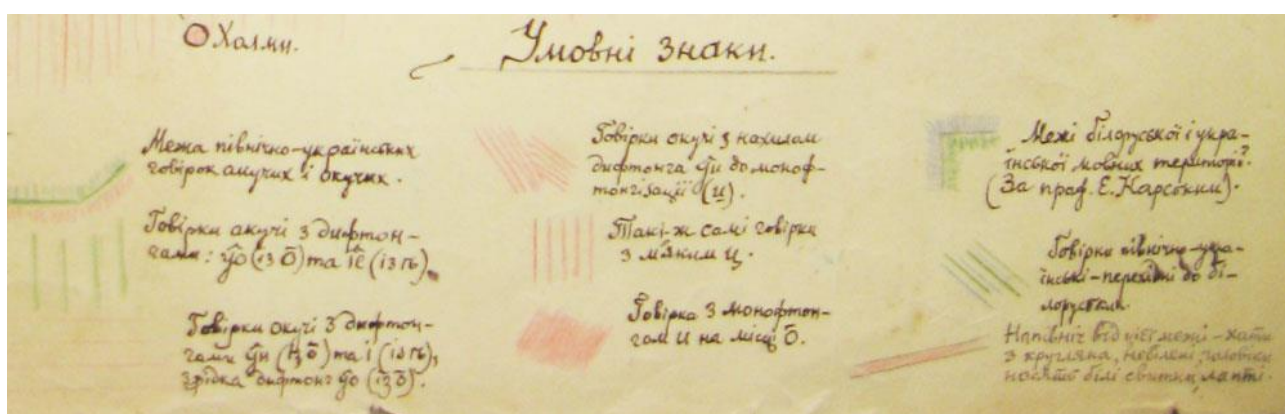 О Халми.
Умовні знаки.
Межа північно-українських
говірок акучих і окучих.
Говірки акучі з дифтон-
гами: у͡о (із о̄) та і͡е (із ѣ)
Говірки окучі з дифтон-
гами у͡и (із о̄) та і (із ѣ),
зрідка дифтонг у͡о (із о̄).
Говірки окучі з нахилом
дифтонга у͡и до моноф-
тонгізації (и).
Такі-ж самі говірки
з м'яким ц.
Говірка з монофтон-
гом и на місці о̄.
Межі білоруської і укра-
їнської мовних територій.
(За проф. Е. Карским).
Говірки північно-укра-
їнські-перехідні до бі-
лоруських.
Напівніч від цієї межі - хати
з кругляка, небілені, чоловіки
носять білі свитки, лапті.